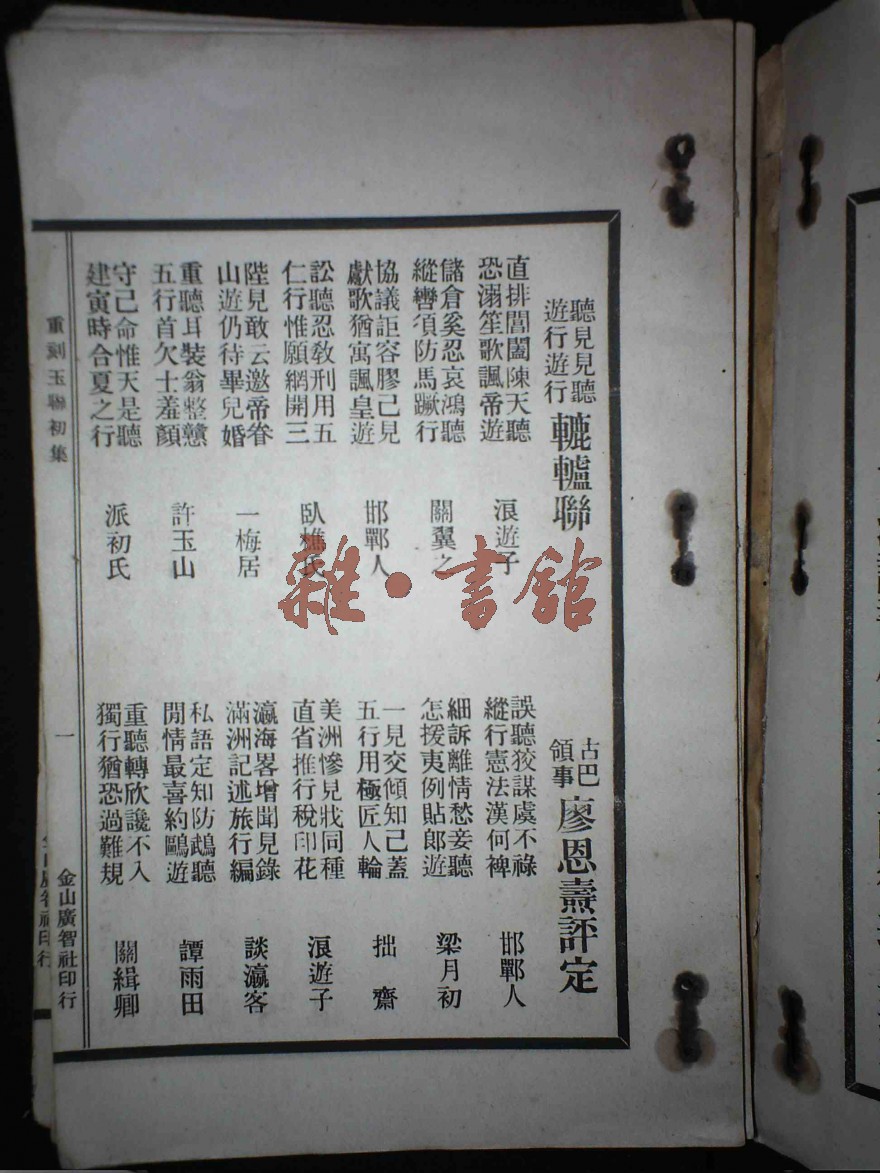 聽見見聽
遊行遊行
轆轤聯
古巴
領事
廖恩燾評定
直排閶闔陳天聽
恐溺笙歌諷帝遊
浪遊子
誤聽狡謀虞不祿
縱行憲法漢何裨
邯鄲人
儲倉奚忍哀鴻聽
縱轡須防馬蹶行
關翼之
細訴離情愁妾聽
怎援夷例貼郞遊
梁月初
協議詎容膠己見
獻歌猶寓諷皇遊
邯鄲人
一見交傾知己蓋
五行用極匠人輪
拙齋
訟聽忍敎刑用五
仁行惟願網開三
臥樵氏
美洲慘見戕同種
直省推行稅印花
浪遊子
陛見敢云邀帝眷
山遊仍待畢兒婚
一梅居
瀛海畧增聞見錄
滿洲記述旅行編
談瀛客
重聽耳裝翁整戇
五行首欠士羞顏
許玉山
私語定知防鵡聽
閒情最喜約鷗遊
譚雨田
守己命惟天是聽
建寅時合夏之行
派初氏
重聽轉欣讒不入
獨行猶恐過難規
關緝卿
重刻玉聯初集
一
金山廣智社印行
雜·書館